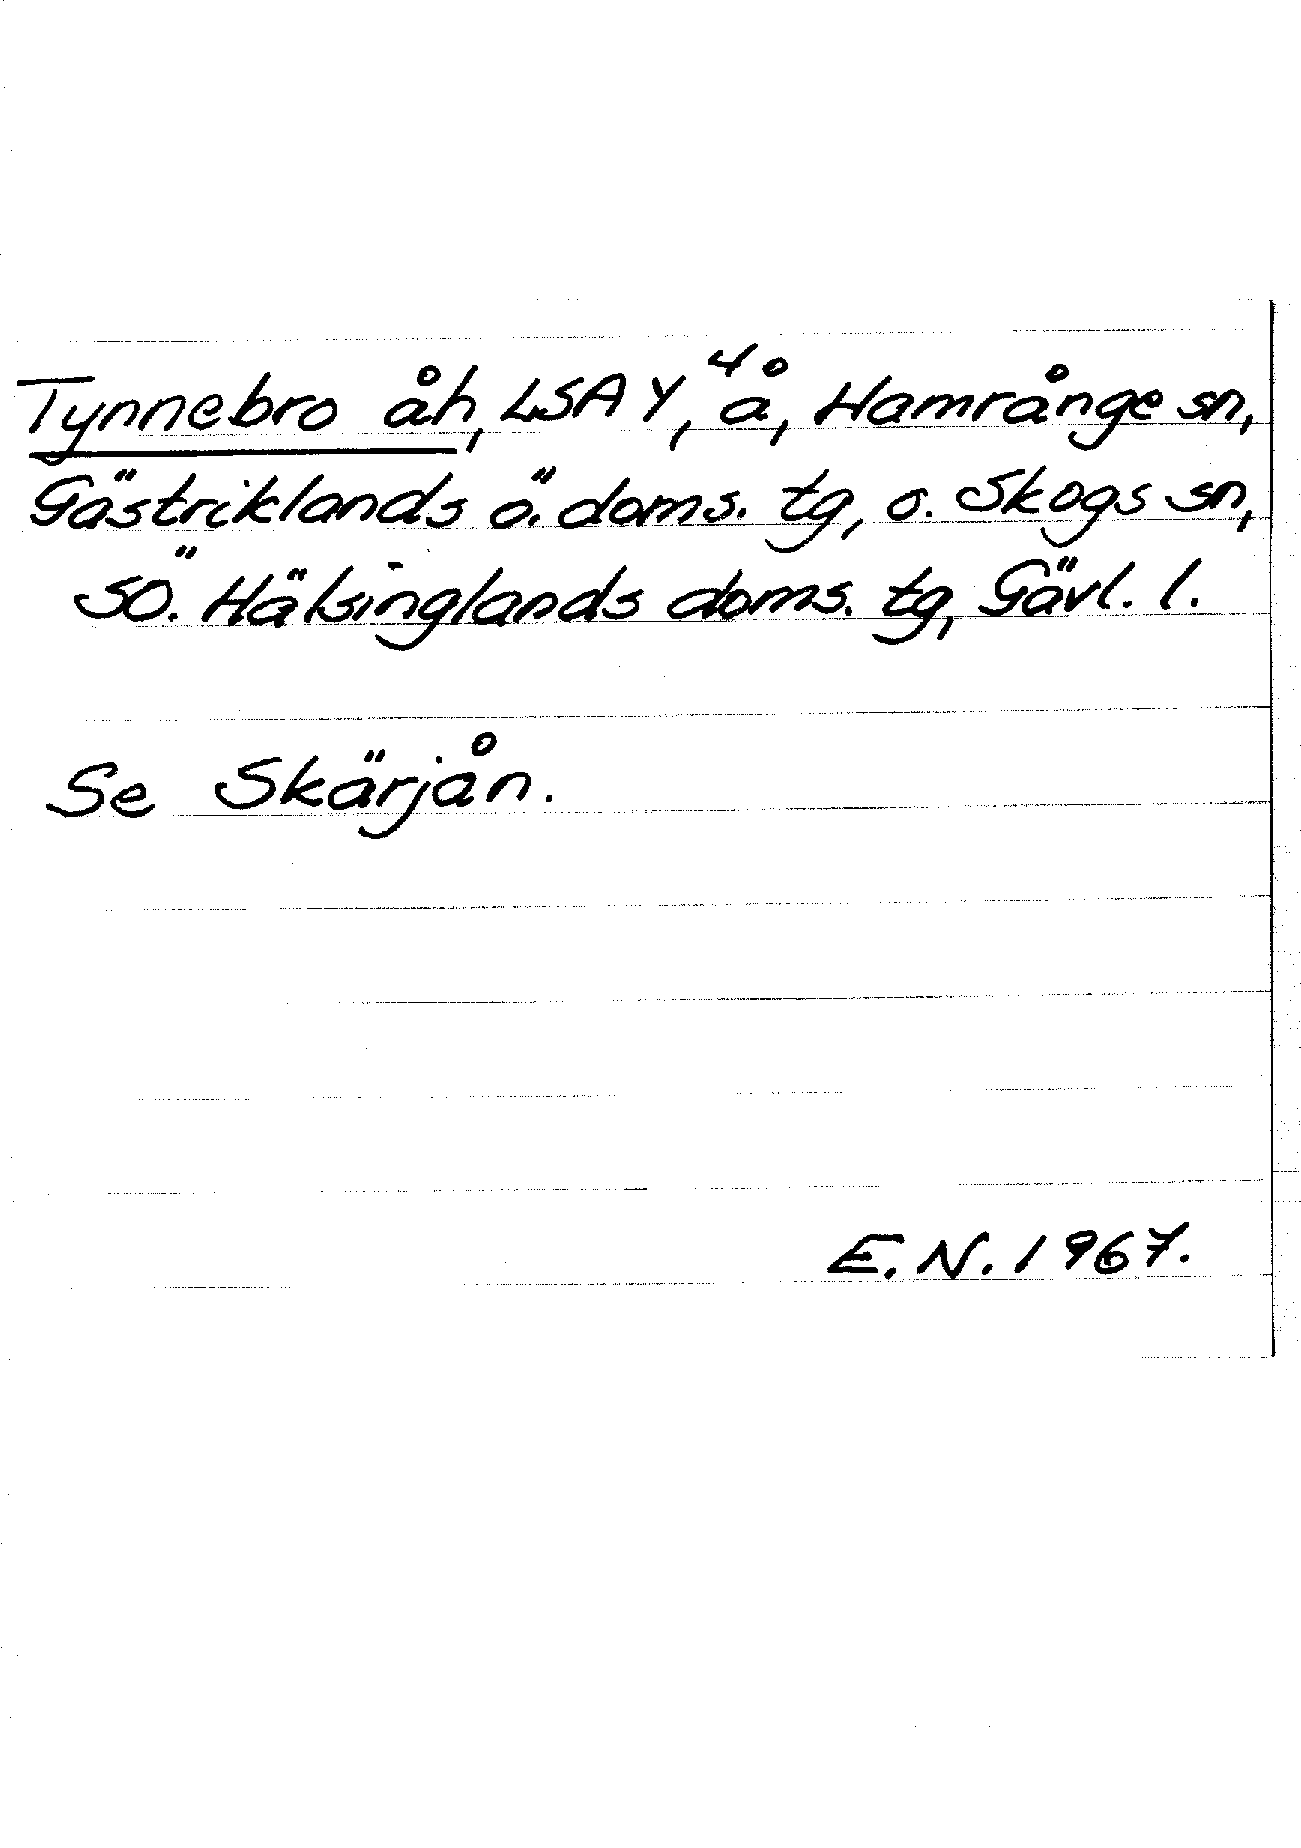 Tynnebro åh, LSA Y, ⁴å, Hamrånge sn,
Gästriklands ö. doms. tg, o. Skogs sn,
SÖ. Hälsinglands doms. tg, Gävl. l.
Se Skärjån.
E. N. 1967.